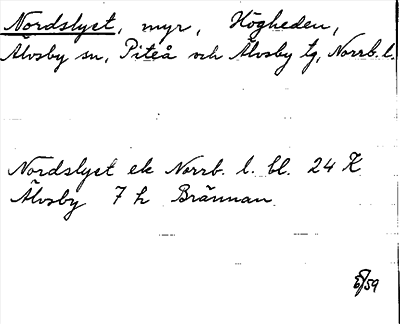 Nordslyet, myr, Högheden,
Älvsby sn, Piteå och Älvsby tg, Norrb. l.
Nordslyet ek Norrb. l. bl. 24 K
Älvsby 7 h Brännan